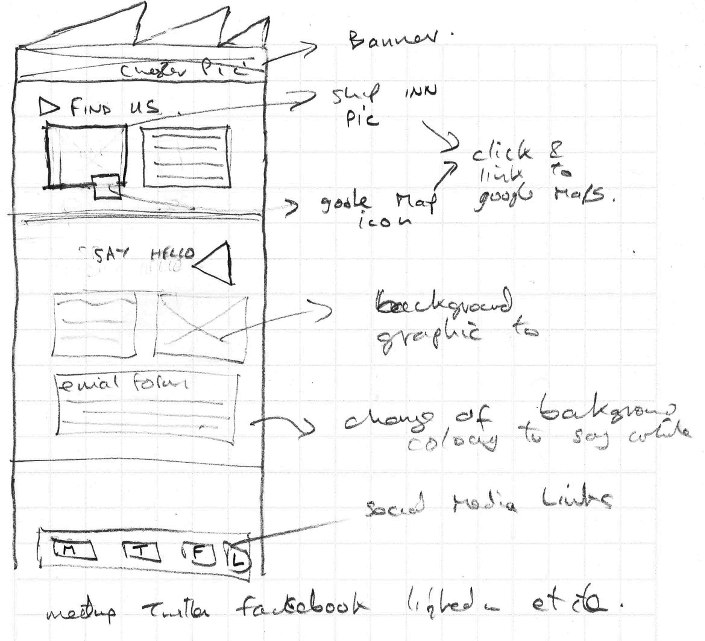 Banner.
Pic
FIND US.
Ship INN
Pic
click &
link to
google Maps.
goole Map
icon
SAY HELLO
background
graphic to
email form
change of
colour to say white
Social Media Links
M T F L
meetup Twitter facebook linkedin etc